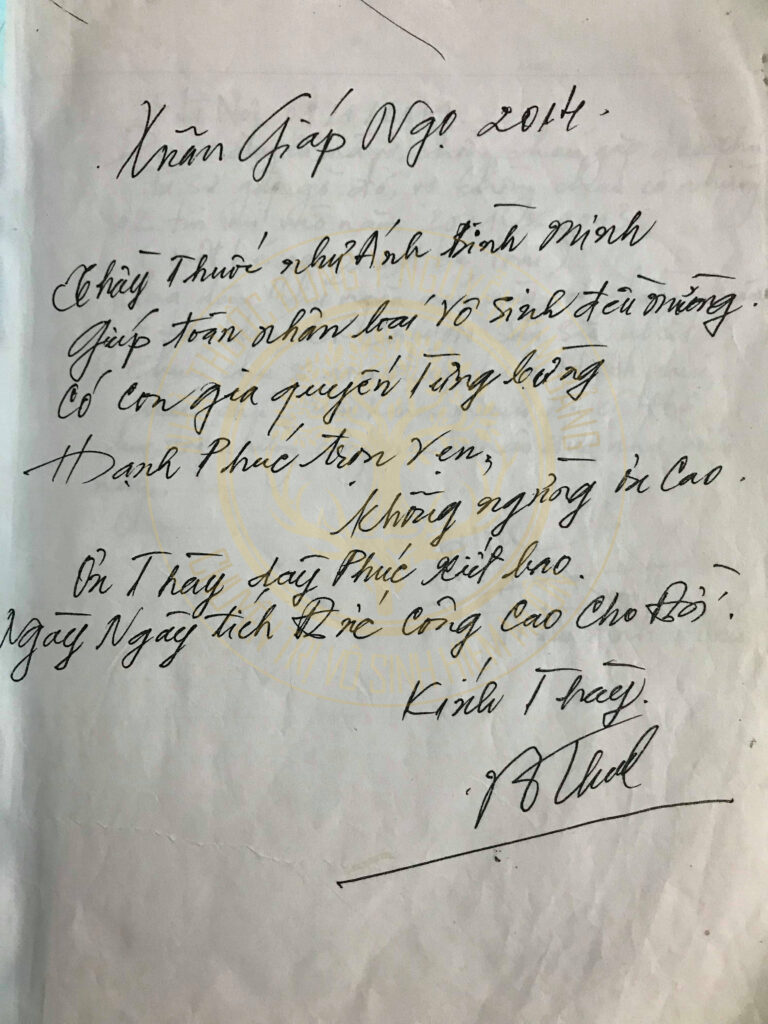 Xuân Giáp Ngọ 2014.
Thầy Thuốc như Ánh Bình Minh
Giúp toàn nhân loại Vô Sinh đều mừng.
Có con gia quyến Tưng bừng
Hạnh Phúc trọn Vẹn,
không ngừng ơn Cao.
Ơn Thầy dầy Phúc xiết bao.
Ngày Ngày tích Đức công Cao Cho Đời.
Kính Thầy.